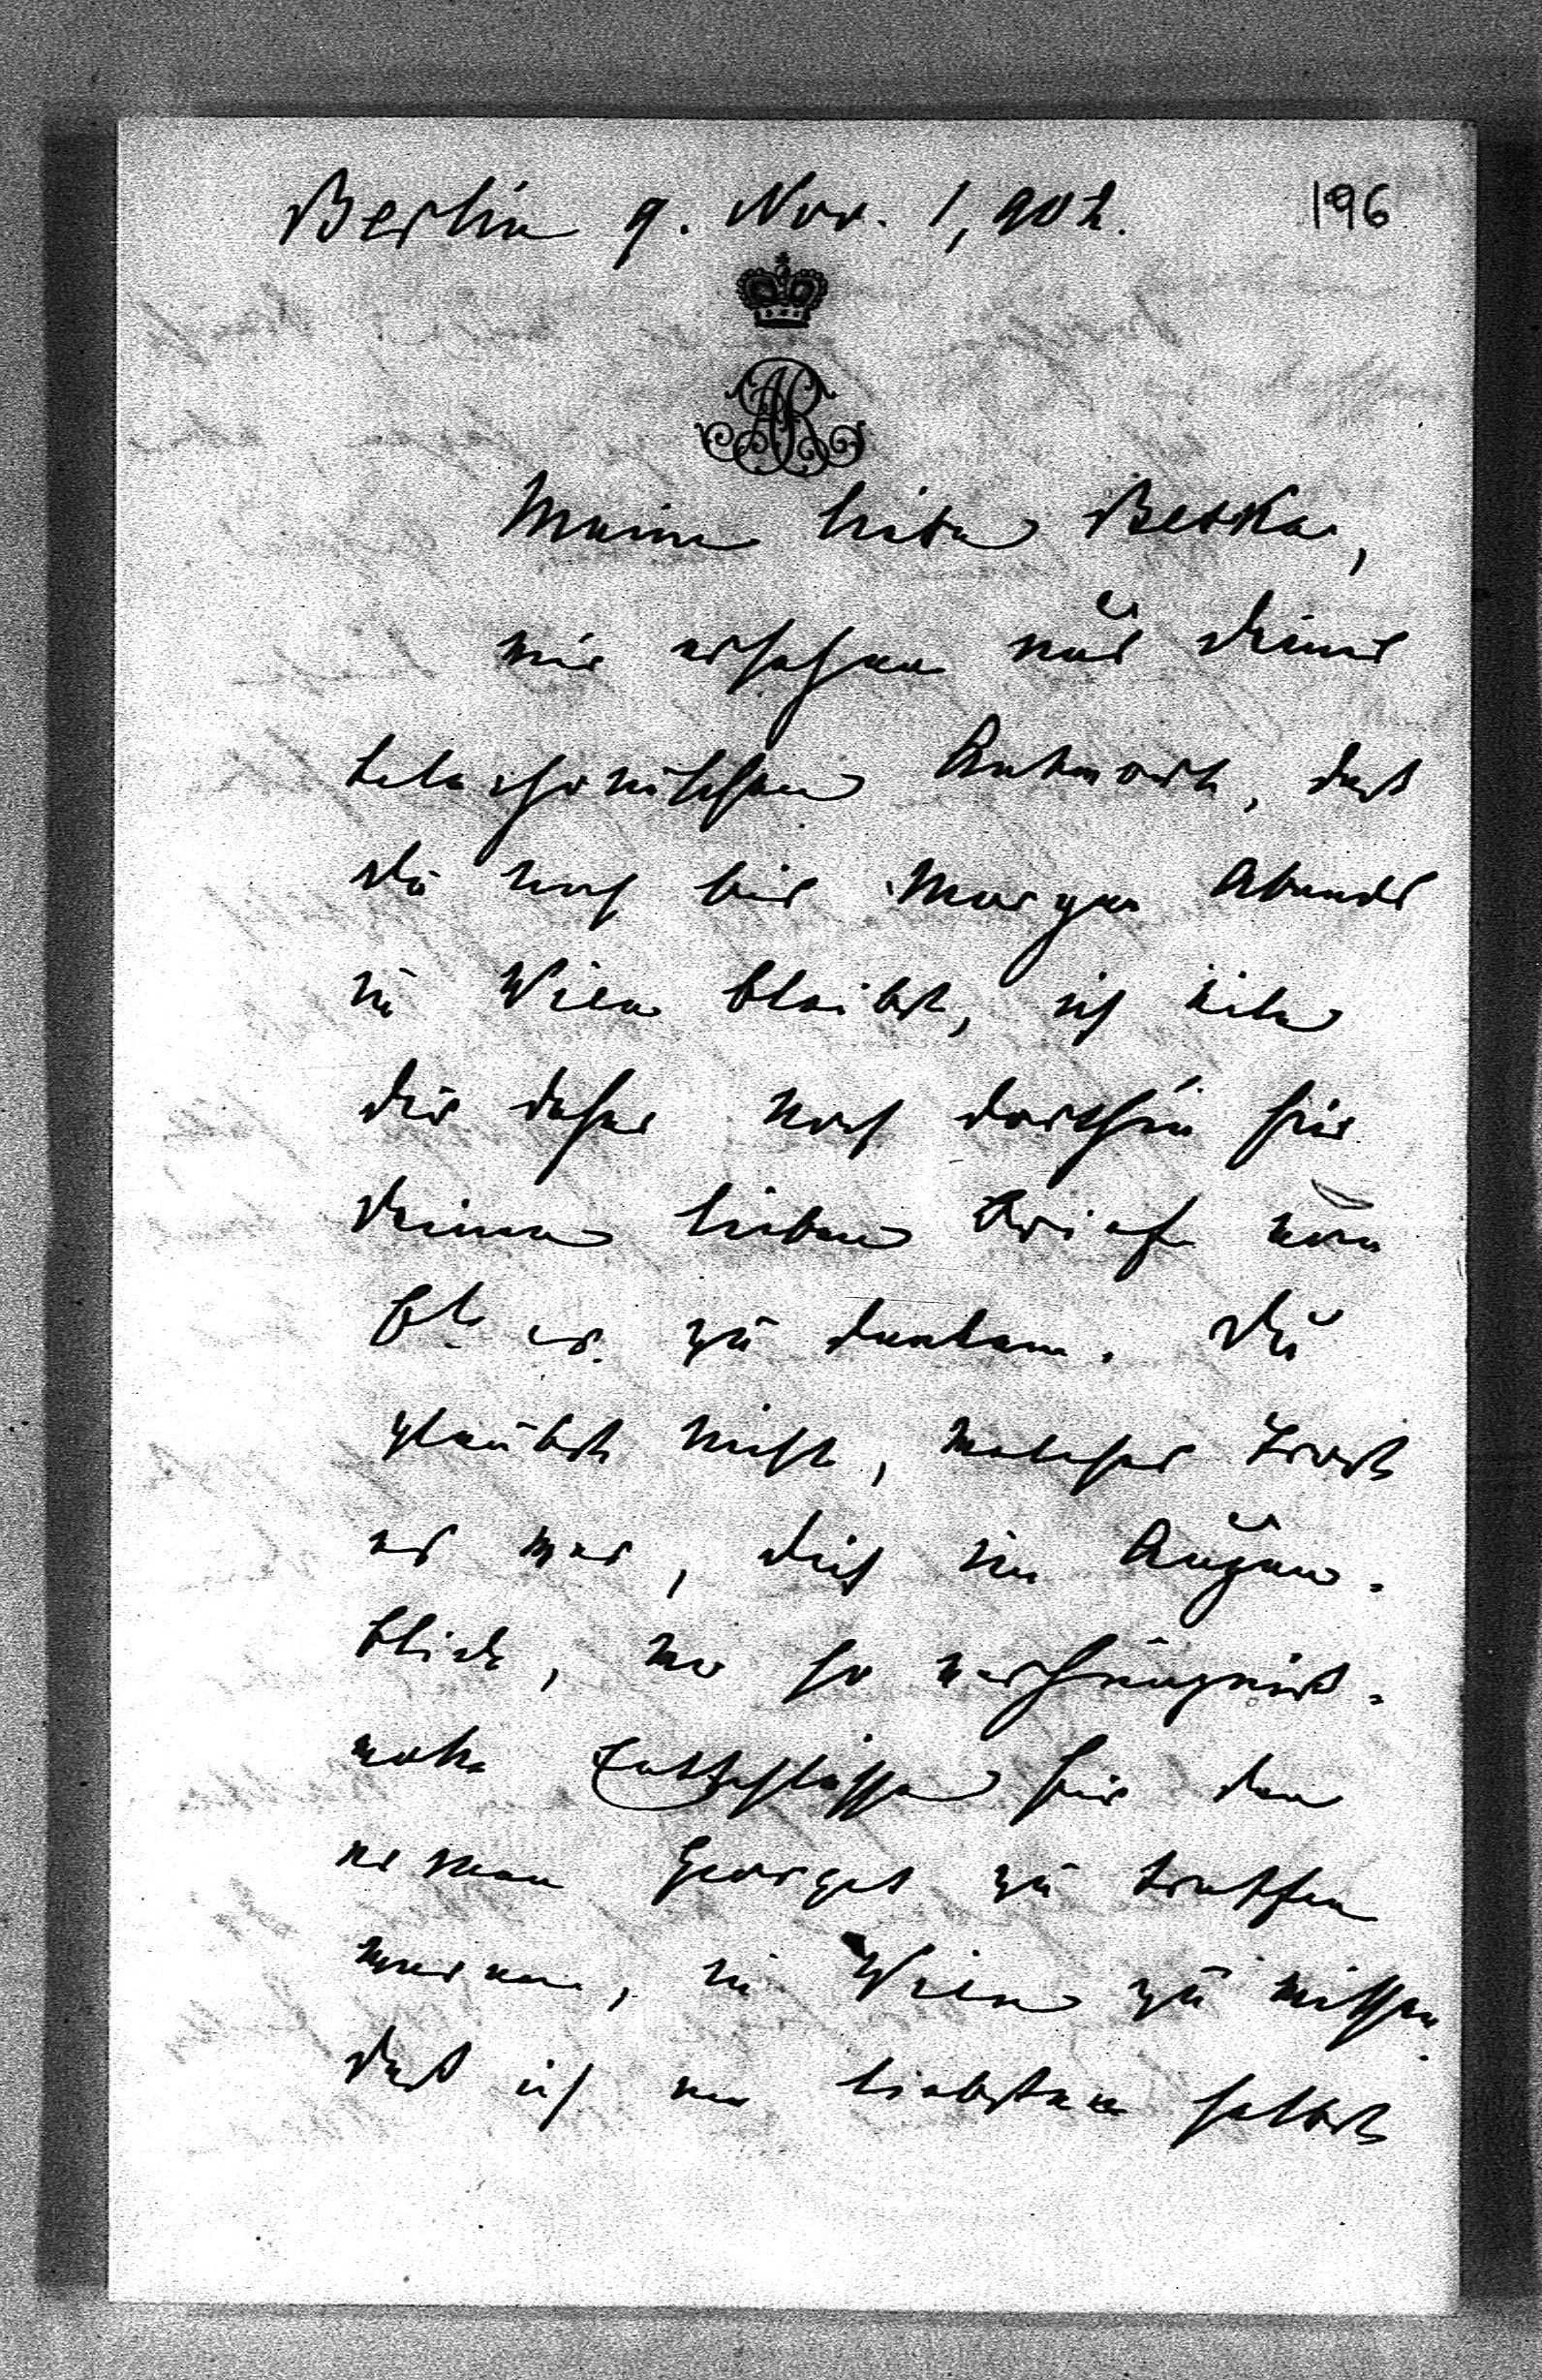 Berlin 9. Nov. 1,902.
196
AR
Meine liebe Beska,
wir ersehen aus Deiner
telephonischen Antwort, daß
Du noch bis Morgen Abends
in Wien bleibst, ich eile
Dir daher noch dorthin für
Deinen lieben Brief vom
zu danken. Du
glaubst nicht, welcher Trost
es war, Dich im Augen-
blick, wo so verhängniß-
volle Entschlüsse für den
armen Georges zu treffen
waren, in Wien zu wissen.
Daß ich am liebsten selbst